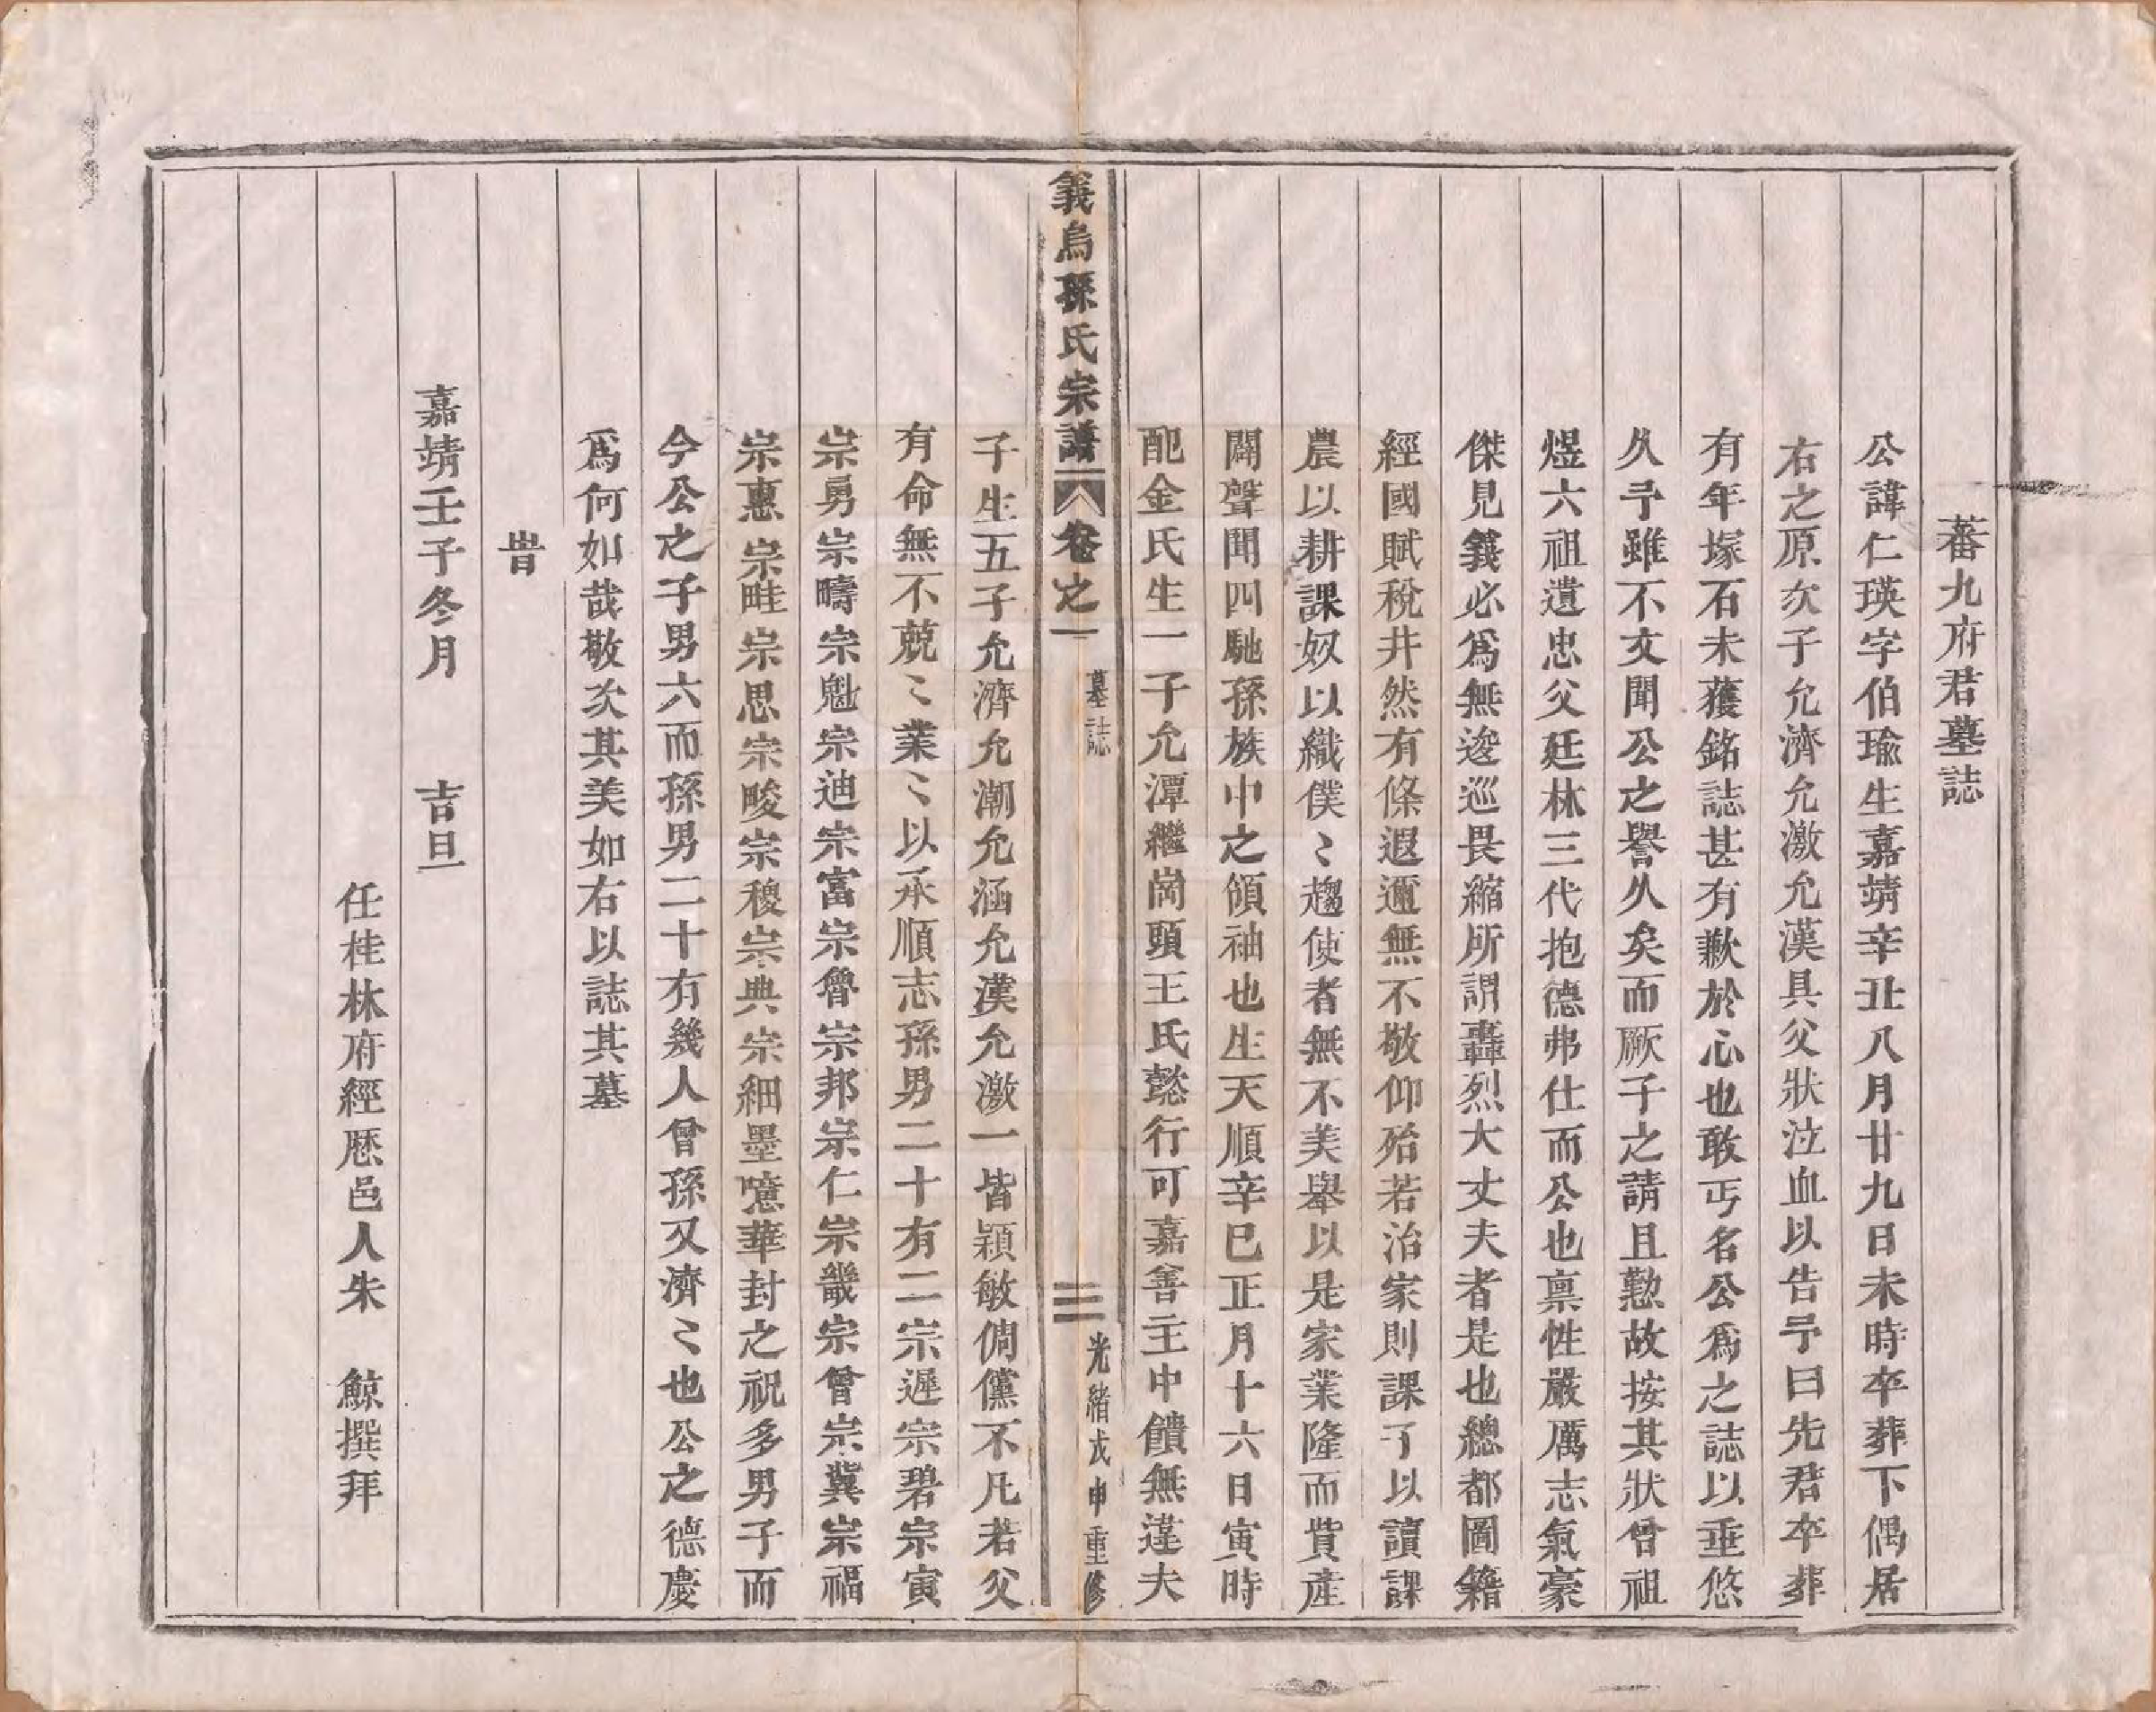 蕃九府君墓誌
公諱仁瑛字伯瑜生嘉靖辛丑八月廿九日未時卒葬下偶居
右之原次子允濟允激允漢具父狀泣血以告予曰先君卒葬
有年塚石未獲銘誌甚有歉於心也敢丐名公爲之誌以垂悠
久予雖不文聞公之譽久矣而厥子之請且懃故按其狀曾祖
煜六祖遺忠父廷林三代抱德弗仕而公也禀性嚴厲志氣豪
傑見義必爲無逡巡畏縮所謂轟烈大丈夫者是也總都圖籍
經國賦稅井然有條遐邇無不敬仰殆若治家則課子以讀課
農以耕課奴以織僕〻趨使者無不美舉以是家業隆而貲產
闢聲聞四馳孫族中之領袖也生天順辛巳正月十六日寅時
配金氏生一子允潭繼崗頭王氏懿行可嘉善主中饋無違夫
義烏孫氏宗譜 卷之一 墓誌 三 光緒戊申重修
子生五子允濟允潮允涵允漢允激一皆穎敏倜儻不凡若父
有命無不兢〻業〻以承順志孫男二十有二宗遲宗碧宗寅
宗勇宗疇宗魁宗迪宗富宗魯宗邦宗仁宗畿宗曾宗冀宗福
宗惠宗畦宗思宗畯宗稷宗典宗細墨噫華封之祝多男子而
今公之子男六而孫男二十有幾人曾孫又濟〻也公之德慶
爲何如哉敬次其美如右以誌其墓
旹
嘉靖壬子冬月 吉旦
任桂林府經歷邑人朱 鯨撰拜